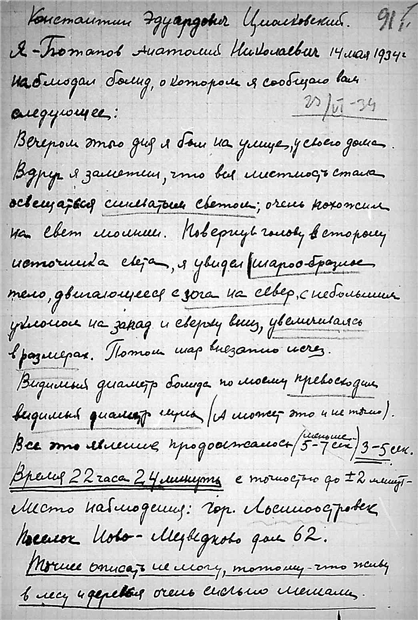 Константин Эдуардович Циолковский. 91
Я - Потапов Анатолий Николаевич 14 мая 1934 г
наблюдал болид, о котором я сообщаю вам
следующее: 23/VI-34
Вечером этого дня я был на улице, у своего дома.
Вдруг я заметил, что вся местность стала
освещаться синеватым светом; очень похожим
на свет молнии. Повернув голову в сторону
источника света, я увидел шарообразное
тело, двигающееся с юга на север, с небольшим
уклоном на запад и сверху вниз, увеличиваясь
в размерах. Потом шар внезапно исчез.
Видимый диаметр болида по моему превосходил
видимый диаметр луны (А может это и не точно).
Все это явление продолжалось (меньше 5-7 сек) 3-5 сек.
Время 22 часа 24 минуты с точностью до ±2 минут-
Место наблюдения: гор. Лосиноостровск
Поселок Ново-Медведково дом 62.
Точнее описать не могу, потому-что живу
в лесу и деревья очень сильно мешали.